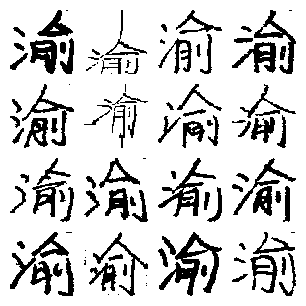 渝渝渝渝
渝渝渝渝
渝渝渝渝
渝渝渝渝